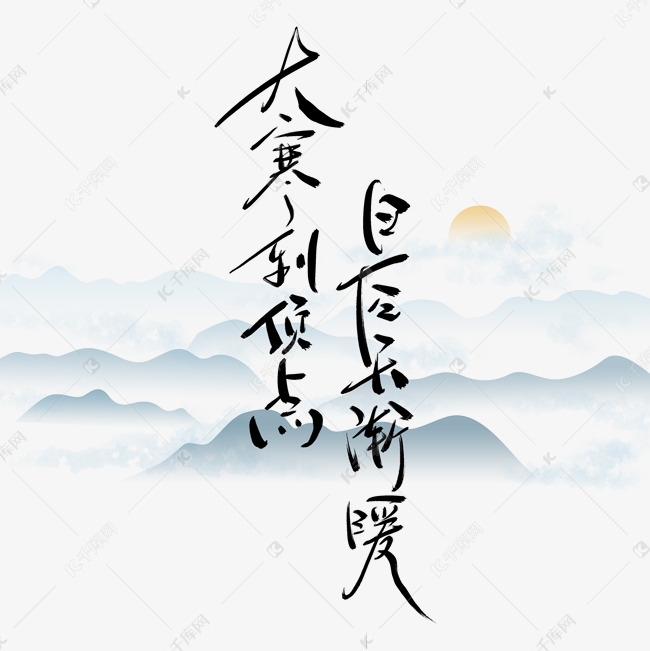 大寒到顶点
日后天渐暖
千库网